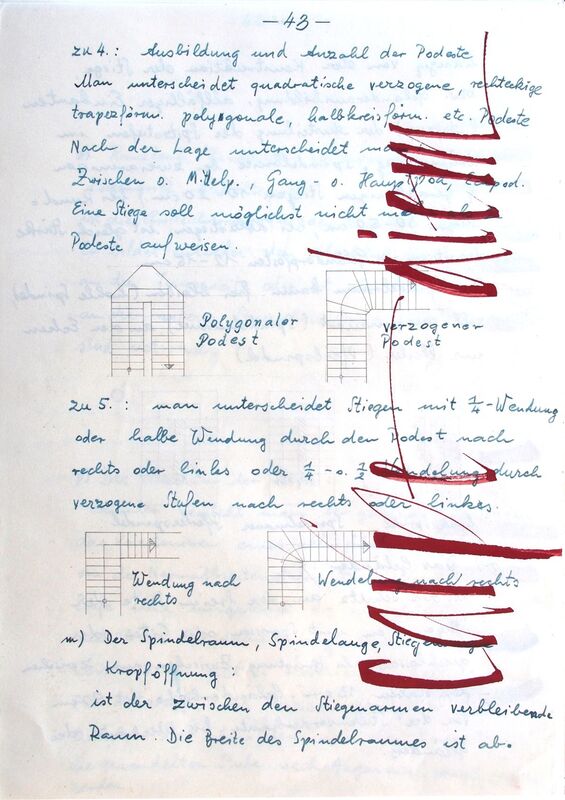 — 43 —
zu 4.: Ausbildung und Anzahl der Podeste
Man unterscheidet quadratische verzogene, rechteckige
trapezförm. polygonale, halbkreisförm. etc. Podeste
Nach der Lage unterscheidet
Zwischen o. Mittelp., Gang- o.
Eine Stiege soll möglichst nicht
Podeste aufweisen.
Polygonaler
Podest
verzogener
Podest
zu 5.: man unterscheidet Stiegen mit 1/4-Wendung
oder halbe Wendung durch den Podest nach
rechts oder links oder 1/4- o. 1/2 Wendelung durch
verzogene Stufen nach rechts oder links.
Wendung nach
rechts
Wendelung nach rechts
m) Der Spindelraum, Spindelauge,
Kropföffnung:
ist der zwischen den Stiegenarmen verbleibende
Raum. Die Breite des Spindelraumes ist ab-